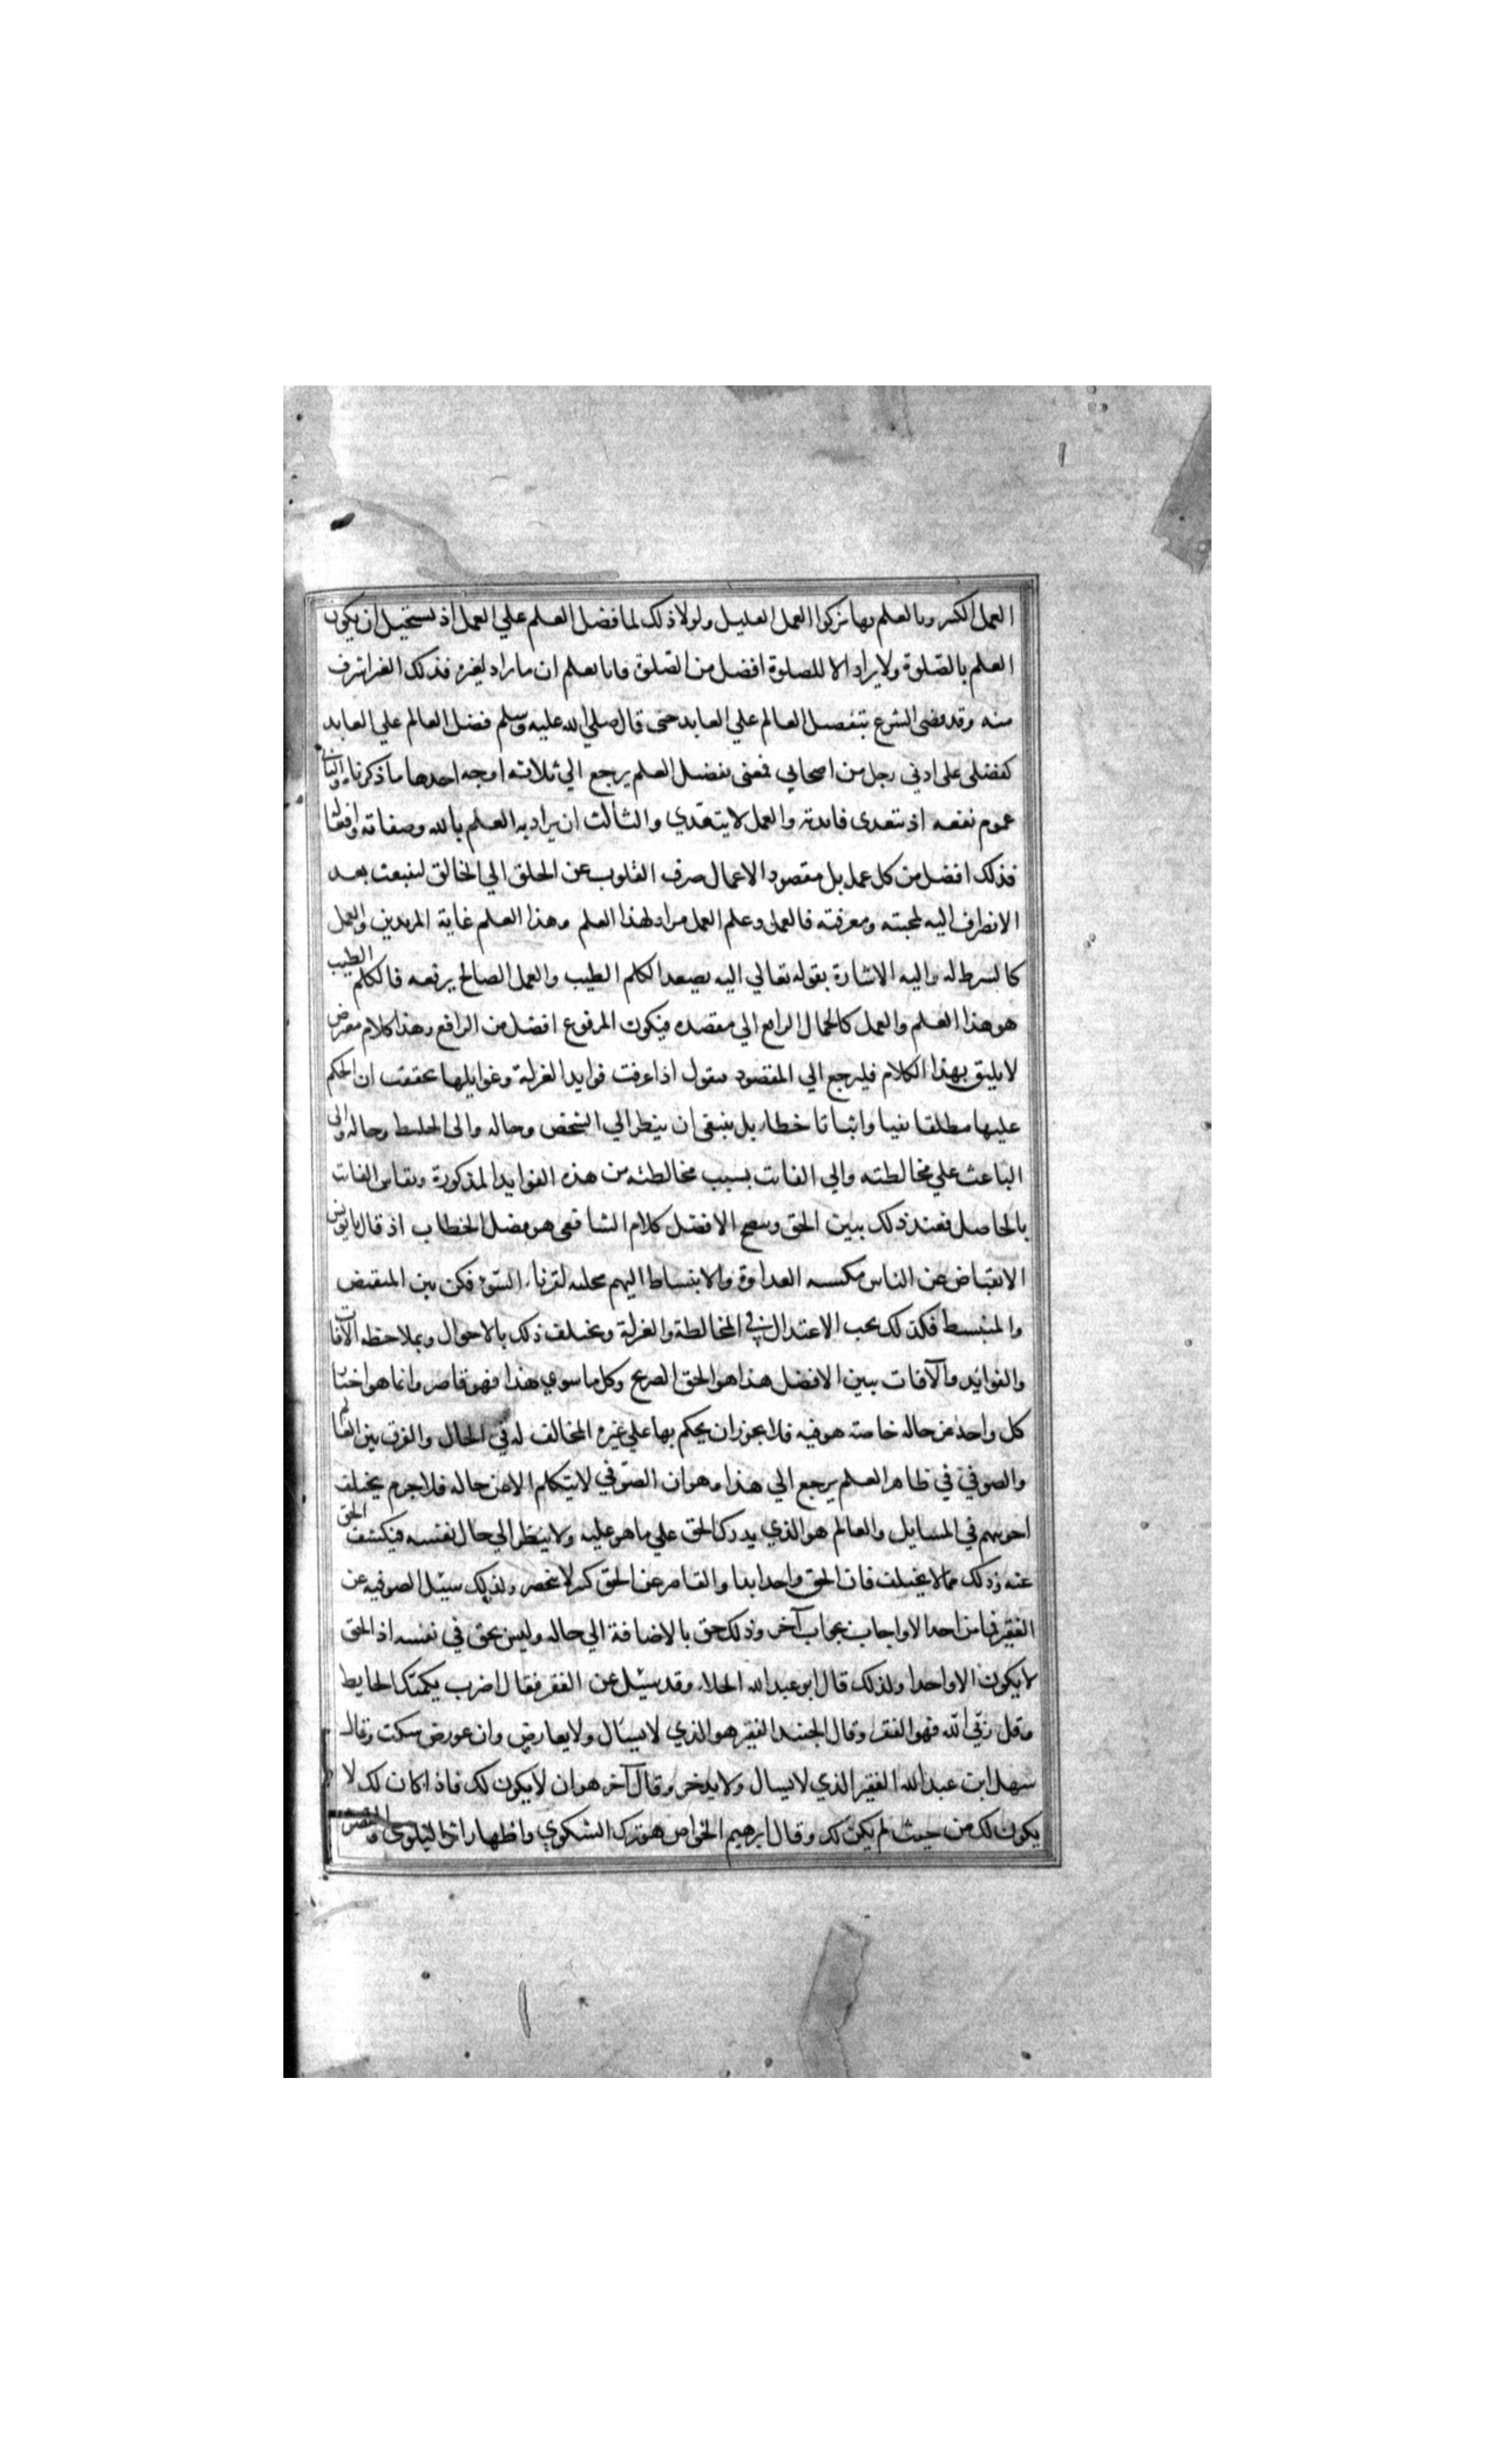 العمل الكثير وبالعلم بها يزكوا العمل القليل ولولا ذلك لما فضل العلم علي العمل اذ يستحيل ان يكون
العلم بالصلوة ولا يراد الا للصلوة افضل من الصلوة فانا نعلم ان ما يراد لغيره فذلك الغير اشرف
منه وقد قضى الشرع بتفضيل العالم علي العابد حتى قال صلي الله عليه وسلم فضل العالم علي العابد
كفضلي على ادني رجل من اصحابي فمعنى تفضيل العلم يرجع الي ثلاثة اوجه احدها ما ذكرناه والثاني
عموم نفعه اذ تتعدى فايدته والعمل لا يتعدي والثالث ان يراد به العلم بالله وصفاته وافعاله
فذلك افضل من كل عمل بل مقصود الاعمال صرف القلوب عن الخلق الي الخالق لينبعث بعد
الانصراف اليه لمحبته ومعرفته فالعمل وعلم العمل مراد لهذا العلم وهذا العلم غاية المريدين والعمل
كالشرط له واليه الاشارة بقوله تعالي اليه يصعد الكلم الطيب والعمل الصالح يرفعه فالكلم الطيب
هو هذا العلم والعمل كالحمال الرافع الي مقصده فيكون المرفوع افضل من الرافع وهذا كلام معترض
لا يليق بهذا الكلام فليرجع الي المقصود فنقول اذا عرفت فوايد العزلة وغوايلها تحققت ان الحكم
عليها مطلقا نفيا واثباتا خطاء بل ينبغى ان ينظر الي الشخص وحاله والى الخليط وحاله والى
الباعث علي مخالطته والي الفائت بسبب مخالطته من هذه الفوايد المذكورة ويقاس الفائت
بالحاصل فعند ذلك يبين الحق ويتضح الافضل كلام الشافعى هو فصل الخطاب اذ قال يا يونس
الانقباض عن الناس مكسبه العداوة والانبساط اليهم مجلبه لقرناء السوء فكن بين المنقبض
والمنبسط فكذلك يجب الاعتدال في المخالطة والعزلة ويختلف ذلك بالاحوال وبملاحظه الافات
والفوائد والآفات يبين الافضل هذا هو الحق الصريح وكل ما سوي هذا فهو قاصر وانما هو اخبار
كل واحد عن حاله خاصه هو فيه فلا يجوز ان يحكم بها علي غيره المخالف له في الحال والفرق بين العالم
والصوفي في ظاهر العلم يرجع الي هذا وهو ان الصوفي لا يتكلم الا عن حاله فلا جرم يختلف
اجوبتهم في المسايل والعالم هو الذي يدرك الحق علي ما هو عليه ولا ينظر الي حال نفسه فيكشف الحق
عنه وذلك مما لا يختلف فان الحق واحد ابدا والقاصر عن الحق كثير لا ينحصر ولذلك سيئل الصوفيه عن
الفقر فما من احد الا واجاب بجواب آخر وذلك حق بالاضافة الي حاله وليس بحق في نفسه اذ الحق
لا يكون الا واحدا ولذلك قال ابو عبد الله الجلاء وقد سيئل عن الفقر فقال اضرب بكميّك الحايط
وقل ربّي الله فهو الفقر وقال الجنيد الفقير هو الذي لا يسال ولا يعارض وان عورض سكت وقال
سهل ابن عبد الله الفقير الذي لا يسال ولا يدخر وقال آخر هو ان لا يكون لك فاذا كان لك لا
يكون لك من حيث لم يكن لك وقال ابرهيم الخواص هو ترك الشكوي واظهار اثر البلوي